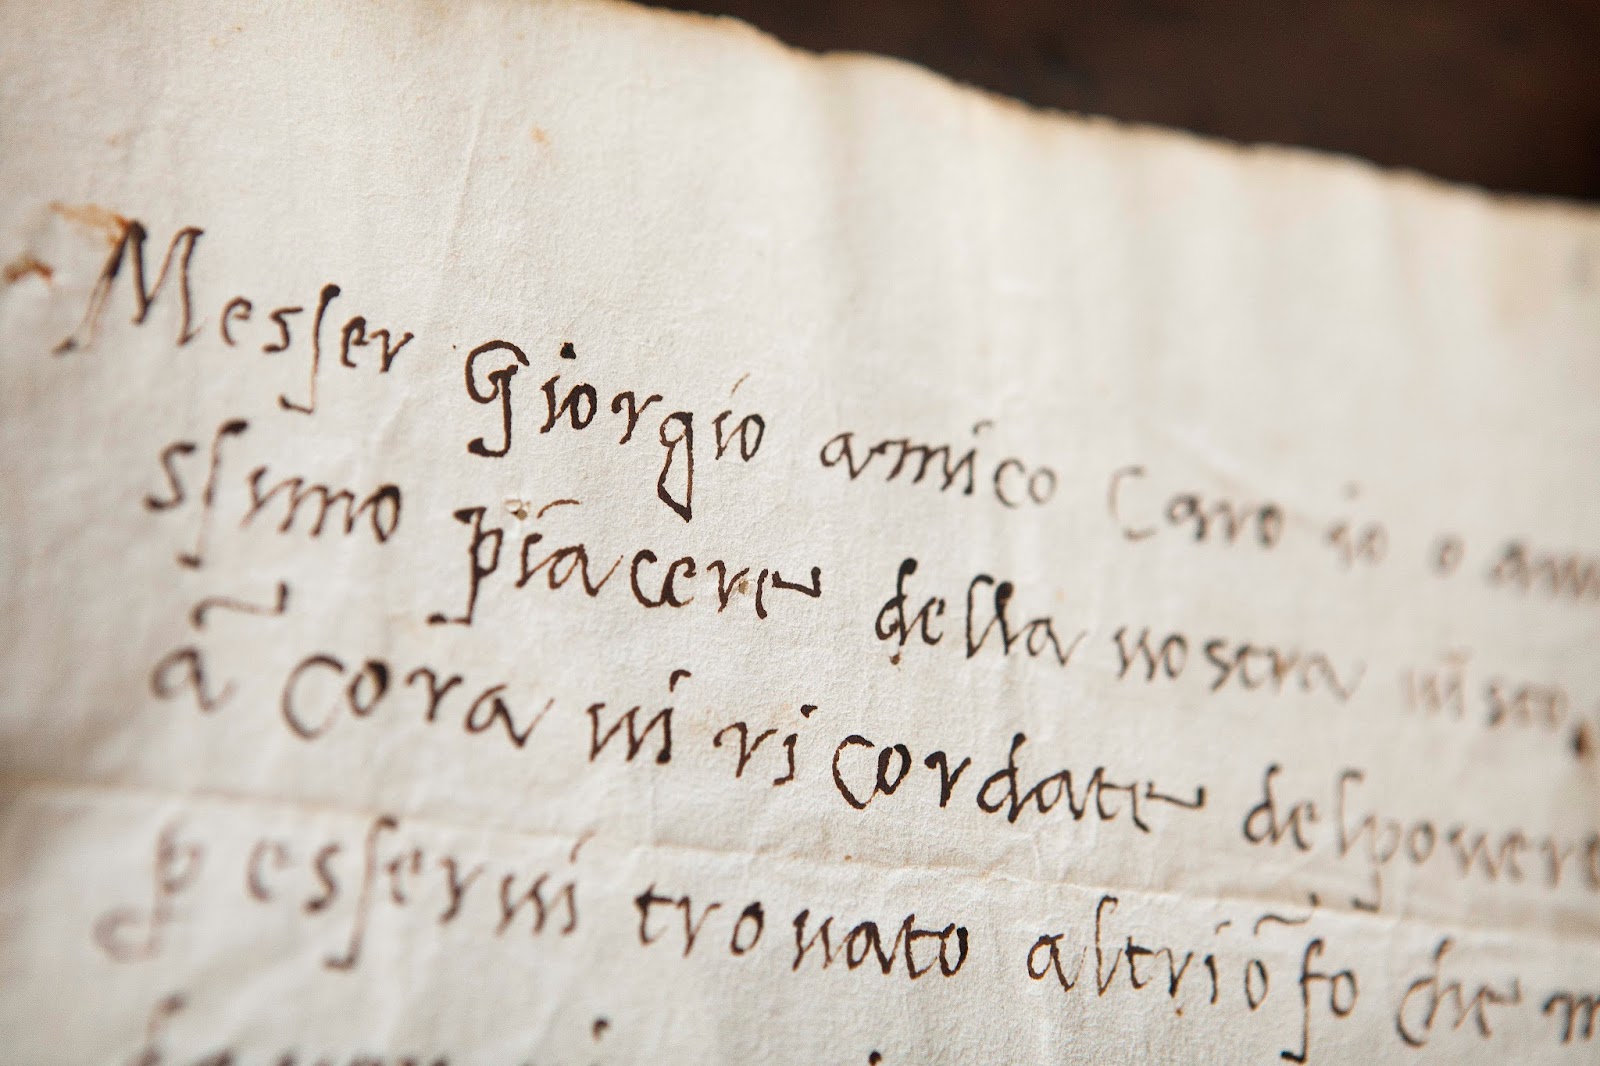 Messer Giorgio amico Caro io o
ssimo piacere della nostra
ãcora ui ricordate del ponere
p esserui trouato al triõfo che